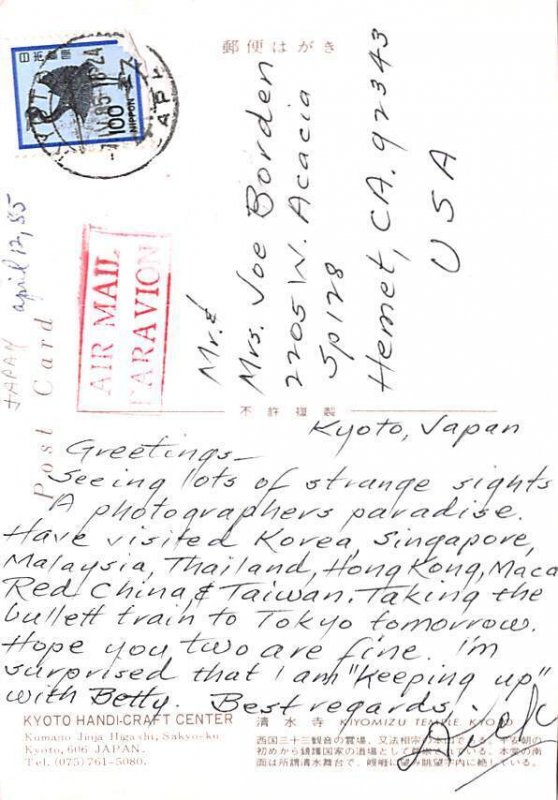 郵便はがき
日本郵便
100
NIPPON
JAPAN april 12, 85
Post Card
AIR MAIL
PAR AVION
Mr. &
Mrs. Joe Borden
2205 W. Acacia
Sp 128
Hemet, CA. 92343
USA
不許複製
Kyoto, Japan
Greetings—
Seeing lots of strange sights
A photographers paradise.
Have visited Korea, Singapore,
Malaysia, Thailand, Hong Kong, Maca
Red China & Taiwan. Taking the
bullett train to Tokyo tomorrow.
Hope you two are fine. I'm
surprised that I am "Keeping up"
with Betty. Best regards,
Dick
KYOTO HANDI-CRAFT CENTER
Kumano Jinja Higashi, Sakyo-ku
Kyoto, 606 JAPAN.
Tel. (075) 761-5080.
清水寺 KIYOMIZU TEMPLE KYOTO
西国三十三観音の霊場、又法相宗の本山である。平安朝の
初めから鎮護国家の道場として尊崇されている。本堂の南
面は所謂清水舞台で、眺望宇内に絶している。